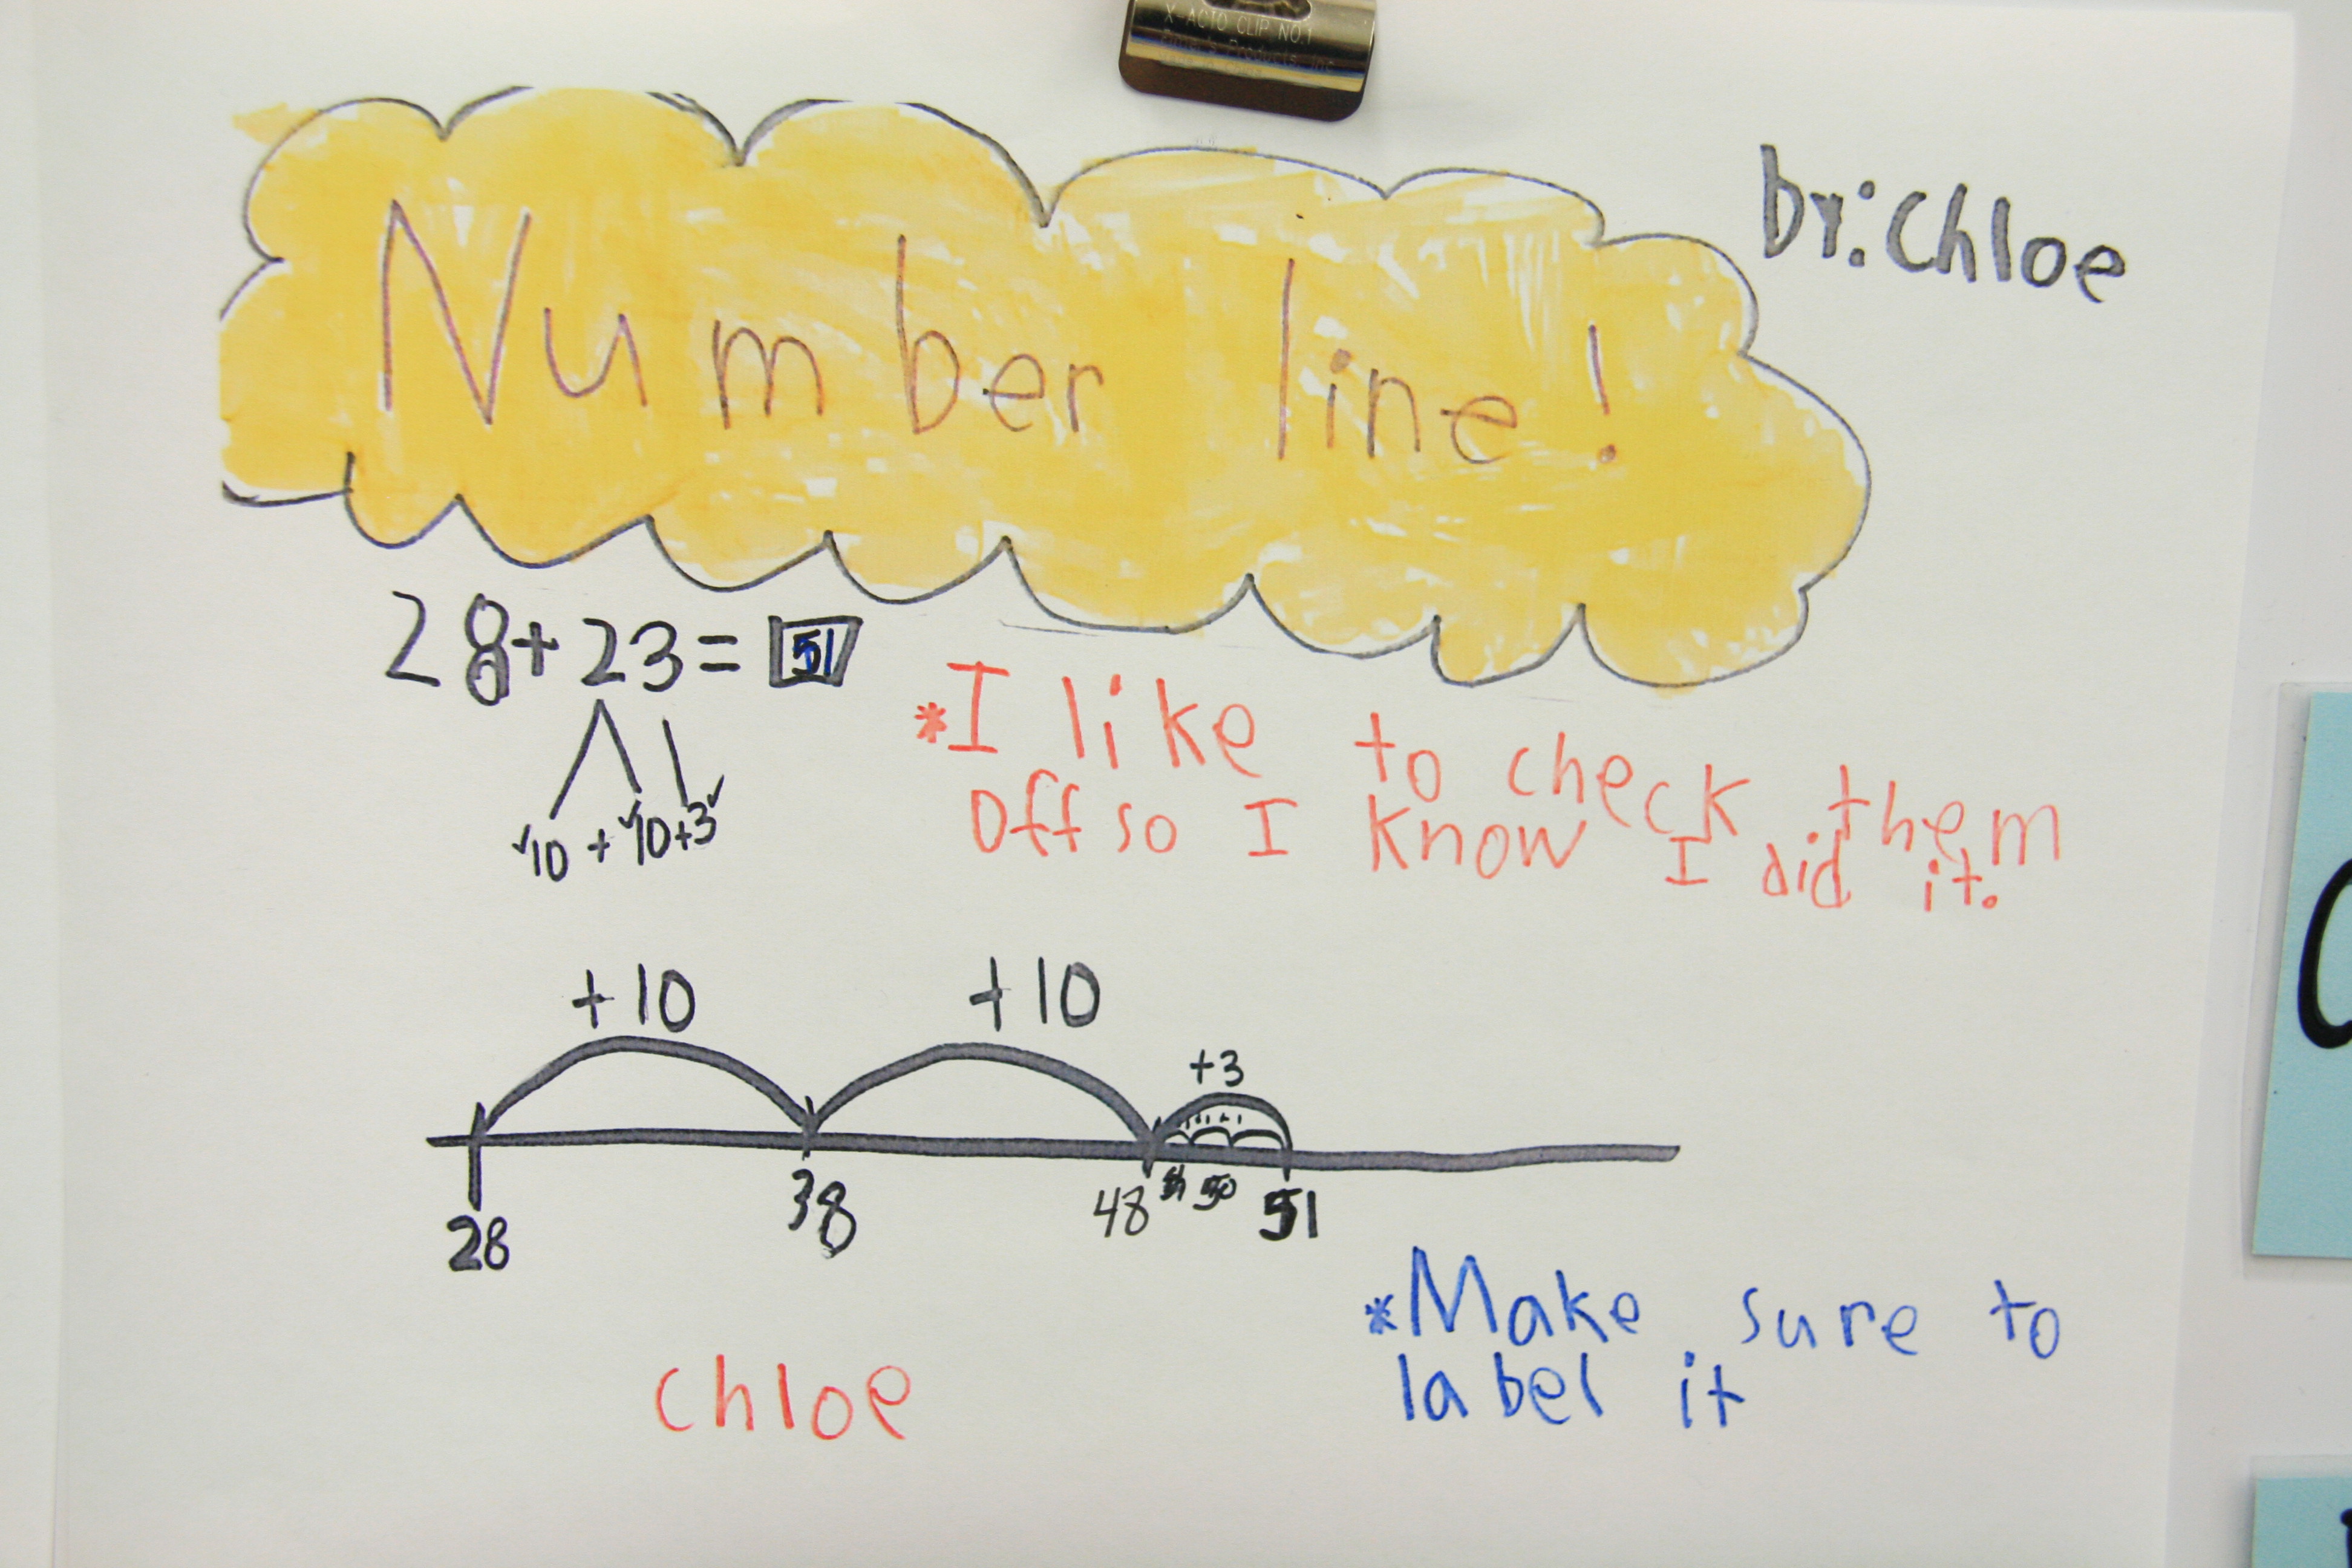 X-ACTO CLIP NO.1
by: Chloe
Number line!
28+23=51
*I like to check them
Off so I know I did it.
✓10+✓10+3✓
+10 +10
+3
28 38 48 50 51
*Make sure to
label it
chloe